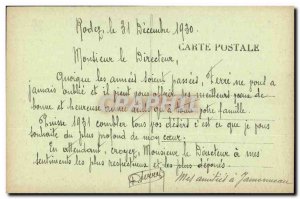 Rodez, le 31 Décembre 1930.
CARTE POSTALE
Monsieur le Directeur,
Quoique les années soient passées, Ferré ne vous a
jamais oublié et il vient vous offrir ses meilleurs vœux de
bonne et heureuse année ainsi qu'à toute votre famille.
Puisse 1931 combler tous vos désirs c'est ce que je vous
souhaite du plus profond de mon cœur.
En attendant, croyez, Monsieur le Directeur à mes
sentiments les plus respectueux et les plus dévoués.
Mes amitiés à